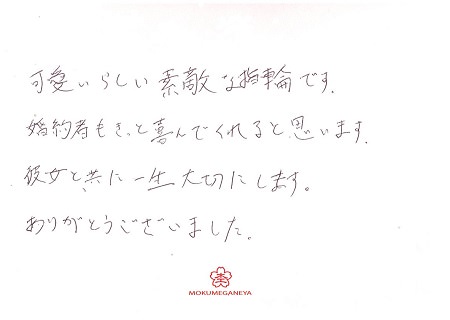 可愛いらしい素敵な指輪です.
婚約者もきっと喜んでくれると思います.
彼女と共に一生大切にします。
ありがとうございました.
MOKUMEGANEYA